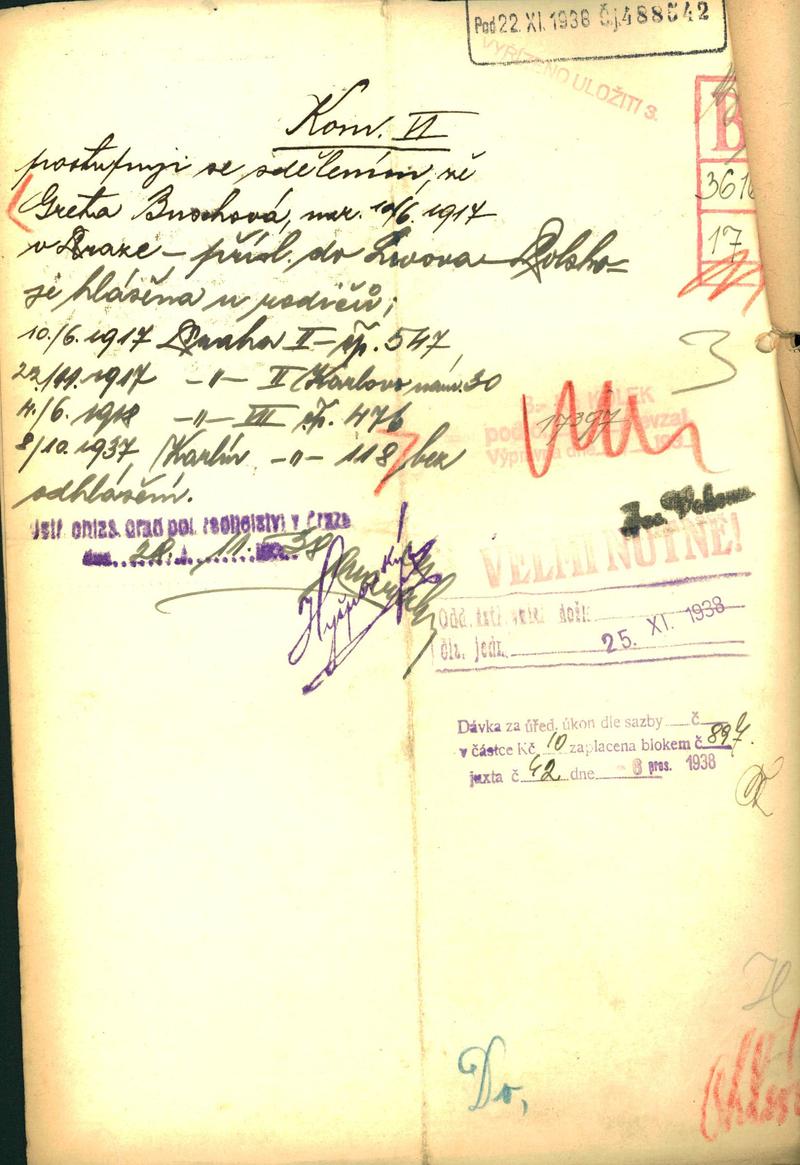 Pod 22. XI. 1938 Č.j. 488542
VYŘÍZENO ULOŽITI 3.
B
3616
17
Kom. VI
postupuji se sdělením, že
Greta Buschová, nar. 10/6. 1917
v Praze – přísl. do Lvova – Polsko –
je hlášena u rodičů;
10./6. 1917 Praha II – čp. 547,
23./11. 1917 –„– II Karlovo nám. 30
4./6. 1918 –„– VII čp. 476
8/10. 1937, Karlín –„– 118, bez
odhlášení.
3
17397
KOLEK
Výpravna dne
Ústř. ohlaš. úřad pol. ředitelství v Praze
dne 24. 11. 38
VELMI NUTNÉ!
25. XI. 1938
čís. jedn.
Dávka za úřed. úkon dle sazby č.
v částce Kč 10 zaplacena blokem č. 897.
juxta č. 42 dne - 6 pros. 1938
Do,